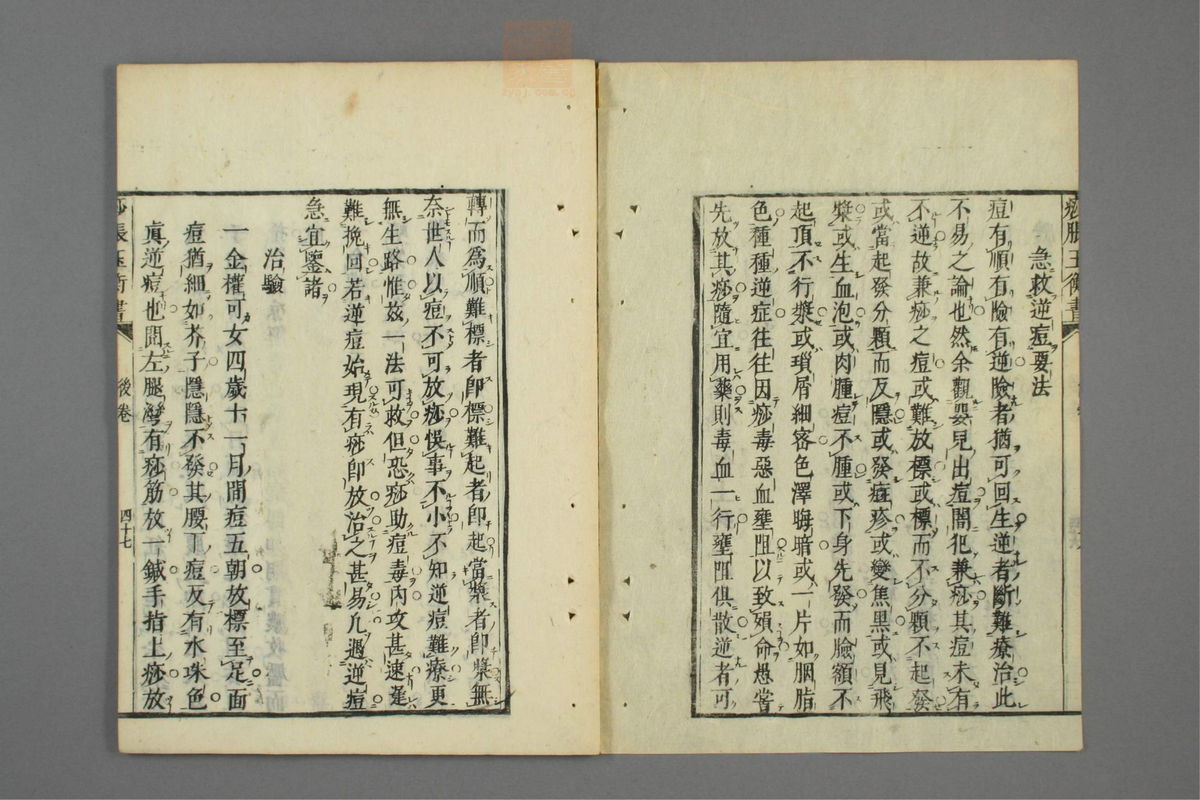 急救逆痘要法
痘有順有險有逆險者猶可回生逆者斷難療治此
不易之論也然余觀嬰兒出痘闇犯兼痧其痘未有
不逆故兼痧之痘或難放標或標而不分顆不起發
或當起發分顆而反隱或發疹或變焦黑或見飛
漿或生血泡或肉腫痘不腫或下身先發而臉額不
起頂不行漿或瑣屑細密色澤晦暗或一片如胭脂
色種種逆症往往因痧毒惡血壅阻以致殞命愚嘗
先放其痧隨宜用藥則毒血一行壅阻俱散逆者可
轉而為順難標者即標難起者即起當漿者即漿無
奈世人以痘不可放痧悞事不小不知逆痘難療更
無生路惟茲一法可救但恐痧助痘毒內攻甚速蓬
難挽回若逆痘始現有痧即放治之甚易凡遇逆痘
急宜鑒諸
治驗
一金權可女四歲十一月間痘五朝放標至足面
痘猶細如芥子隱隱不發其腰下痘反有水珠色
真逆痘也閱左腿彎有痧筋放一鍼手指上痧放
痧脹玉衡書
後卷
四十七